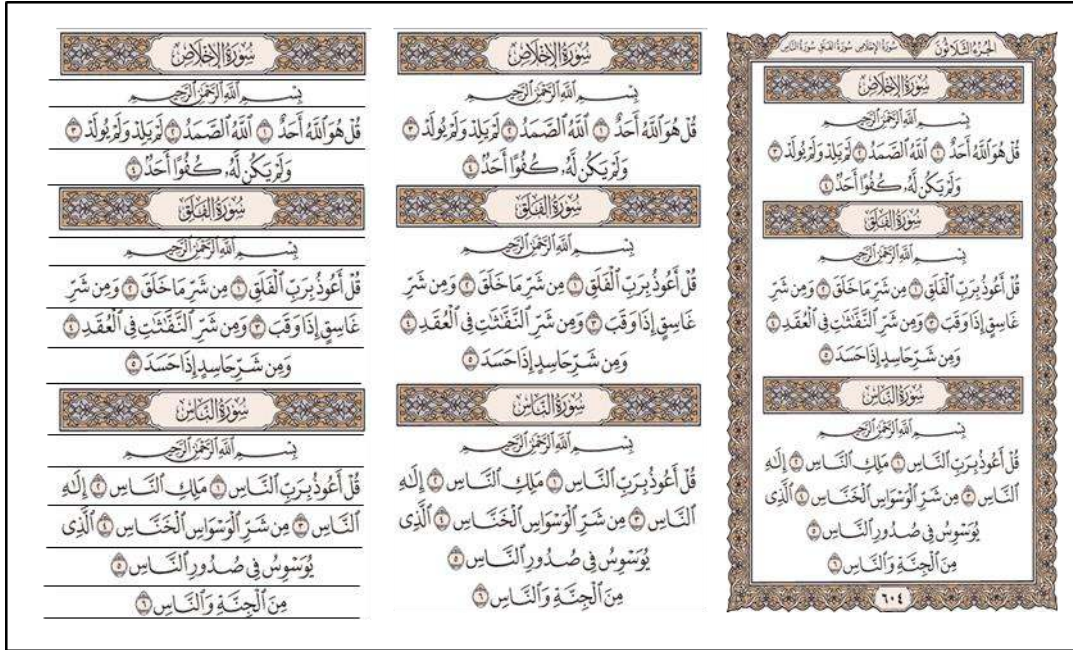 الجزء الثلاثون
سورة الإخلاص سورة الفلق سورة الناس
سُورَةُ الإِخْلَاصِ
بِسْمِ ٱللَّهِ ٱلرَّحْمَٰنِ ٱلرَّحِيمِ
قُلْ هُوَ ٱللَّهُ أَحَدٌ ١ ٱللَّهُ ٱلصَّمَدُ ٢ لَمْ يَلِدْ وَلَمْ يُولَدْ ٣
وَلَمْ يَكُن لَّهُۥ كُفُوًا أَحَدٌۢ ٤
سُورَةُ الفَلَقِ
بِسْمِ ٱللَّهِ ٱلرَّحْمَٰنِ ٱلرَّحِيمِ
قُلْ أَعُوذُ بِرَبِّ ٱلْفَلَقِ ١ مِن شَرِّ مَا خَلَقَ ٢ وَمِن شَرِّ
غَاسِقٍ إِذَا وَقَبَ ٣ وَمِن شَرِّ ٱلنَّفَّٰثَٰتِ فِي ٱلْعُقَدِ ٤
وَمِن شَرِّ حَاسِدٍ إِذَا حَسَدَ ٥
سُورَةُ النَّاسِ
بِسْمِ ٱللَّهِ ٱلرَّحْمَٰنِ ٱلرَّحِيمِ
قُلْ أَعُوذُ بِرَبِّ ٱلنَّاسِ ١ مَلِكِ ٱلنَّاسِ ٢ إِلَٰهِ
ٱلنَّاسِ ٣ مِن شَرِّ ٱلْوَسْوَاسِ ٱلْخَنَّاسِ ٤ ٱلَّذِي
يُوَسْوِسُ فِي صُدُورِ ٱلنَّاسِ ٥
مِنَ ٱلْجِنَّةِ وَٱلنَّاسِ ٦
٦٠٤
سُورَةُ الإِخْلَاصِ
بِسْمِ ٱللَّهِ ٱلرَّحْمَٰنِ ٱلرَّحِيمِ
قُلْ هُوَ ٱللَّهُ أَحَدٌ ١ ٱللَّهُ ٱلصَّمَدُ ٢ لَمْ يَلِدْ وَلَمْ يُولَدْ ٣
وَلَمْ يَكُن لَّهُۥ كُفُوًا أَحَدٌۢ ٤
سُورَةُ الفَلَقِ
بِسْمِ ٱللَّهِ ٱلرَّحْمَٰنِ ٱلرَّحِيمِ
قُلْ أَعُوذُ بِرَبِّ ٱلْفَلَقِ ١ مِن شَرِّ مَا خَلَقَ ٢ وَمِن شَرِّ
غَاسِقٍ إِذَا وَقَبَ ٣ وَمِن شَرِّ ٱلنَّفَّٰثَٰتِ فِي ٱلْعُقَدِ ٤
وَمِن شَرِّ حَاسِدٍ إِذَا حَسَدَ ٥
سُورَةُ النَّاسِ
بِسْمِ ٱللَّهِ ٱلرَّحْمَٰنِ ٱلرَّحِيمِ
قُلْ أَعُوذُ بِرَبِّ ٱلنَّاسِ ١ مَلِكِ ٱلنَّاسِ ٢ إِلَٰهِ
ٱلنَّاسِ ٣ مِن شَرِّ ٱلْوَسْوَاسِ ٱلْخَنَّاسِ ٤ ٱلَّذِي
يُوَسْوِسُ فِي صُدُورِ ٱلنَّاسِ ٥
مِنَ ٱلْجِنَّةِ وَٱلنَّاسِ ٦
سُورَةُ الإِخْلَاصِ
بِسْمِ ٱللَّهِ ٱلرَّحْمَٰنِ ٱلرَّحِيمِ
قُلْ هُوَ ٱللَّهُ أَحَدٌ ١ ٱللَّهُ ٱلصَّمَدُ ٢ لَمْ يَلِدْ وَلَمْ يُولَدْ ٣
وَلَمْ يَكُن لَّهُۥ كُفُوًا أَحَدٌۢ ٤
سُورَةُ الفَلَقِ
بِسْمِ ٱللَّهِ ٱلرَّحْمَٰنِ ٱلرَّحِيمِ
قُلْ أَعُوذُ بِرَبِّ ٱلْفَلَقِ ١ مِن شَرِّ مَا خَلَقَ ٢ وَمِن شَرِّ
غَاسِقٍ إِذَا وَقَبَ ٣ وَمِن شَرِّ ٱلنَّفَّٰثَٰتِ فِي ٱلْعُقَدِ ٤
وَمِن شَرِّ حَاسِدٍ إِذَا حَسَدَ ٥
سُورَةُ النَّاسِ
بِسْمِ ٱللَّهِ ٱلرَّحْمَٰنِ ٱلرَّحِيمِ
قُلْ أَعُوذُ بِرَبِّ ٱلنَّاسِ ١ مَلِكِ ٱلنَّاسِ ٢ إِلَٰهِ
ٱلنَّاسِ ٣ مِن شَرِّ ٱلْوَسْوَاسِ ٱلْخَنَّاسِ ٤ ٱلَّذِي
يُوَسْوِسُ فِي صُدُورِ ٱلنَّاسِ ٥
مِنَ ٱلْجِنَّةِ وَٱلنَّاسِ ٦